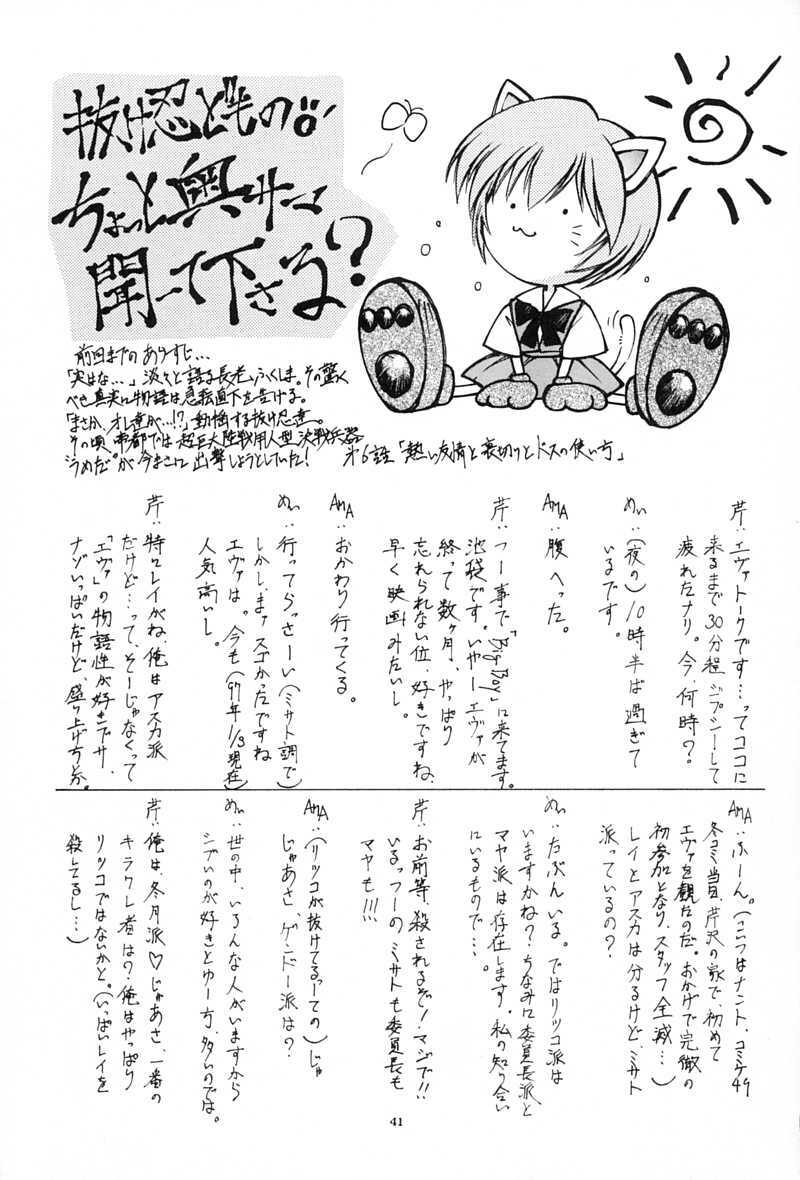 抜け忍どもの
ちょっと奥サマ
聞いて下さる?
前回までのあらすじ…
「実はな…」淡々と語る長老、ふくしま。その驚く
べき真実に物語は急転直下を告げる。
「まさか、オレ達が…!?」動揺する抜け忍達。
その頃、帝都では超巨大陸戦用人型決戦兵器
"うめだ"が今まさに出撃しようとしていた!
第6話「熱い友情と裏切りとドスの使い方」
芹:エヴァトークです…ってココに
来るまで30分程ジプシーして
疲れたナリ。今、何時?
めい:(夜の)10時半は過ぎて
いるです。
AMA:腹へった。
芹:つー事で「Big Boy」に来てます。
池袋です。いやーエヴァが
終って数ヶ月、やっぱり
忘れられない位、好きですね、
早く映画みたいし。
AMA:おかわり行ってくる。
めい:行ってらっさーい(ミサト調で)
しかし、まァスゴかったですね
エヴァは。今も(97年1/3現在)
人気高いし。
芹:特にレイがね、俺はアスカ派
だけど…って、そーじゃなくって
「エヴァ」の物語性が好きでサ、
ナゾいっぱいだけど、盛り上げ方とか。
AMA:ふーん。(こいつはナント、コミケ49
冬コミ当日、芹沢の家で、初めて
エヴァを観たのだ。おかげで完徹の
初参加となり、スタッフ全滅…)
レイとアスカは分るけど、ミサト
派っているの?
めい:たぶんいる。ではリツコ派は
いますかね?ちなみに委員長派と
マヤ派は存在します。私の知り合い
にいるもので…。
芹:お前等、殺されるぞ!マジで!!
いるっつーの、ミサトも委員長も
マヤも!!!
AMA:(リツコが抜けてるっての)じゃ
じゃあさ、ゲンドー派は?
めい:世の中、いろんな人がいますから
シブいのが好きとゆー方、多いのでは。
芹:俺は、冬月派♡じゃあさ、一番の
キラクレ者は?俺はやっぱり
リツコではないかと。(いっぱいレイを
殺してるし…)
41